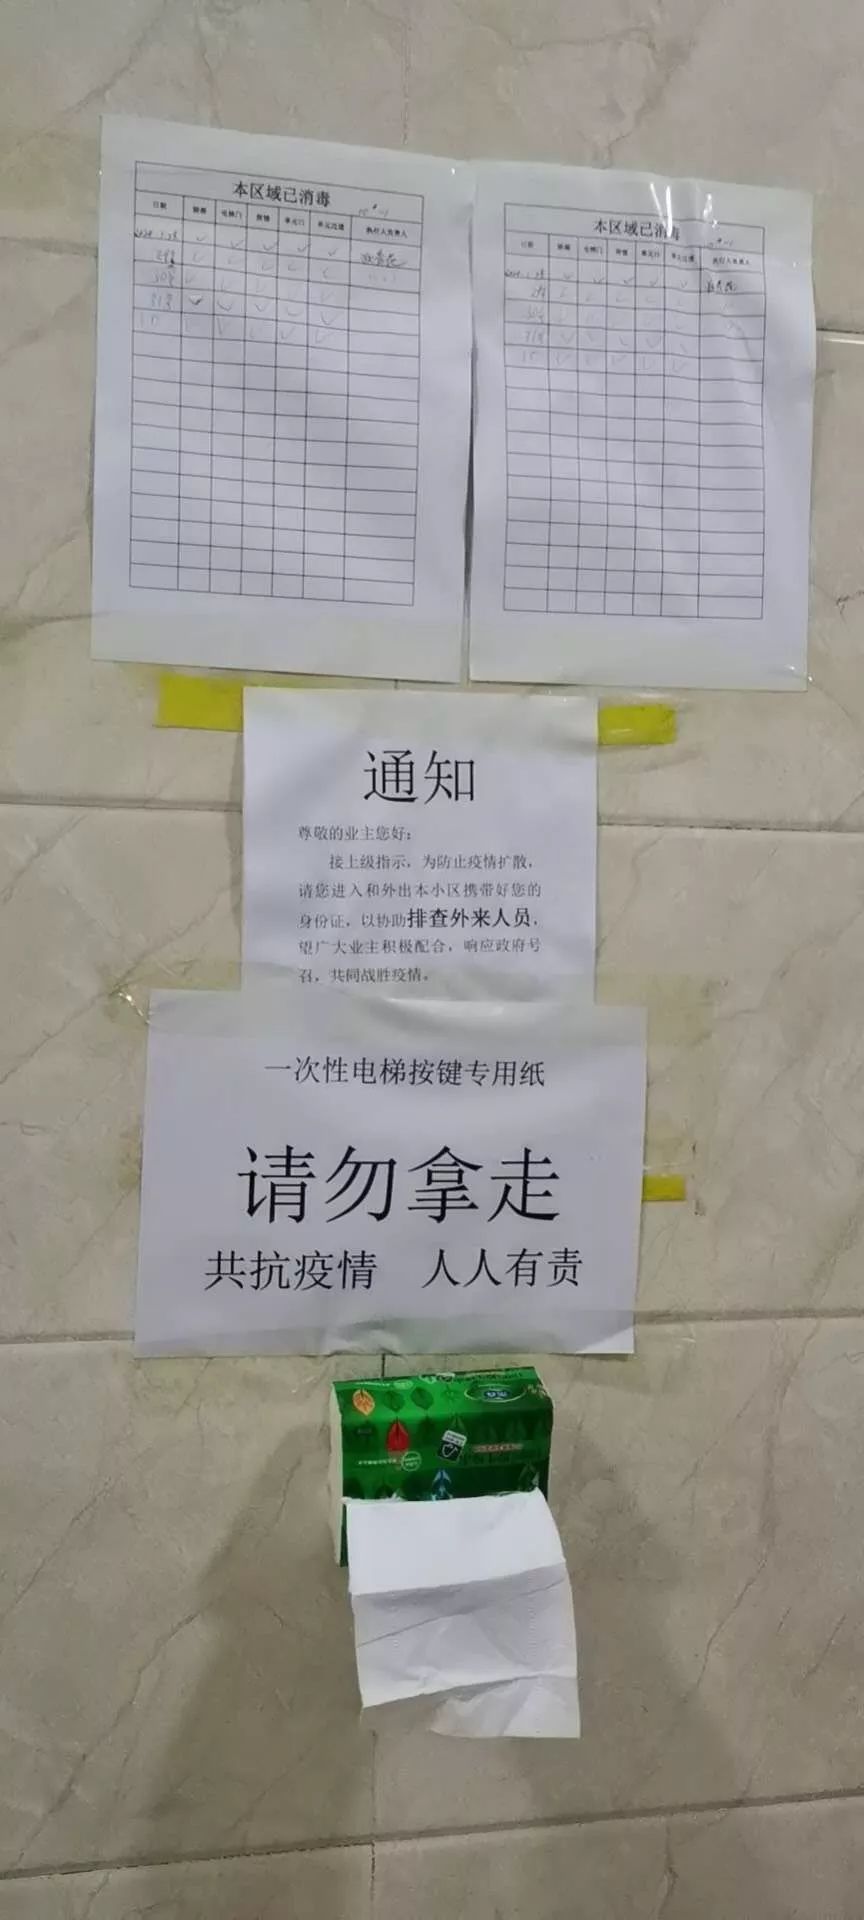 本区域已消毒
日期 轿厢 电梯门 按钮 单元门 单元过道 执行人负责人
29号
30号
31号
本区域已消毒
日期 轿厢 电梯门 按钮 单元门 单元过道 执行人负责人
29号
30号
31号
通知
尊敬的业主您好：
接上级指示，为防止疫情扩散，
请您进入和外出本小区携带好您的
身份证，以协助排查外来人员，
望广大业主积极配合，响应政府号
召，共同战胜疫情。
一次性电梯按键专用纸
请勿拿走
共抗疫情 人人有责